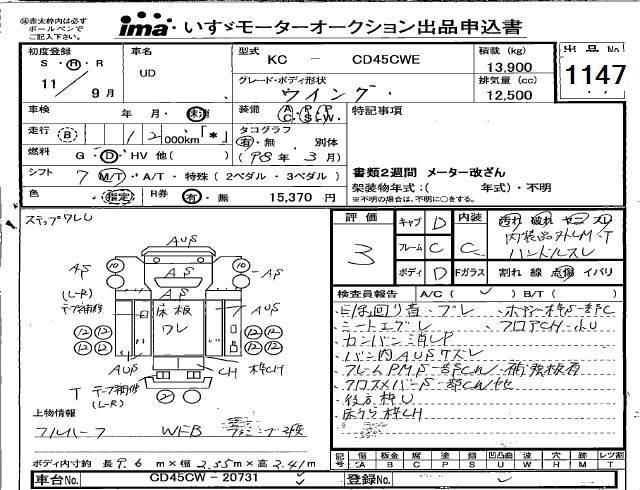 ㊟赤太枠内は必ず
ボールペンで
ご記入下さい。
ima いすゞモーターオークション出品申込書
初度登録
S・H・R
11 / 9月
車名
UD
型式
KC － CD45CWE
積載 (kg)
13,900
出品No
1147
グレード・ボディ形状
ウイング
排気量 (cc)
12,500
車検 年 月・ 抹消
装備 A/C P/S P/W
特記事項
走行 B 12 000km「*」
タコグラフ
有・無 別体
(98年 3月)
燃料 G・D・HV 他( )
書類2週間 メーター改ざん
シフト 7 M/T・A/T・特殊 (2ペダル・3ペダル)
架装物年式：( 年式)・不明
*不明の場合は、不明に○をする。
色 指定
R券 有・無 15,370円
ステップワレU
評価
3
キャブ D
フレーム C
ボディ D
内装 C
Fガラス
汚れ 破れ ヤニ スレ
内装品外レM・T
ハンドルスレ
割れ 線 点傷 イバリ
検査員報告 A/C ( ) B/T ( )
シートエブレ
フロアCH・小U
カンバン消しP
バン内AUSケズレ
フレームPMS一部CM・補強板有
後方枠U
床ウラ枠CH
AUS
AS
10
10
AS
AS
AS
(L-R)
テープ補修
床板
ワレ
AUS
12 12
12 12
12 12
12 12
AUS
CH
枠CH
T テープ補修
(L-R)
2
上物情報
フルハーフ WFB
ボディ内寸約 長9.6 m×幅 2.35m×高 2.41m
記号 傷 板金 腐 塗 錆 凹凸曲 波 穴 跡 レツ割
A B C P S U W H M T
車台No. CD45CW－20731
登録No.